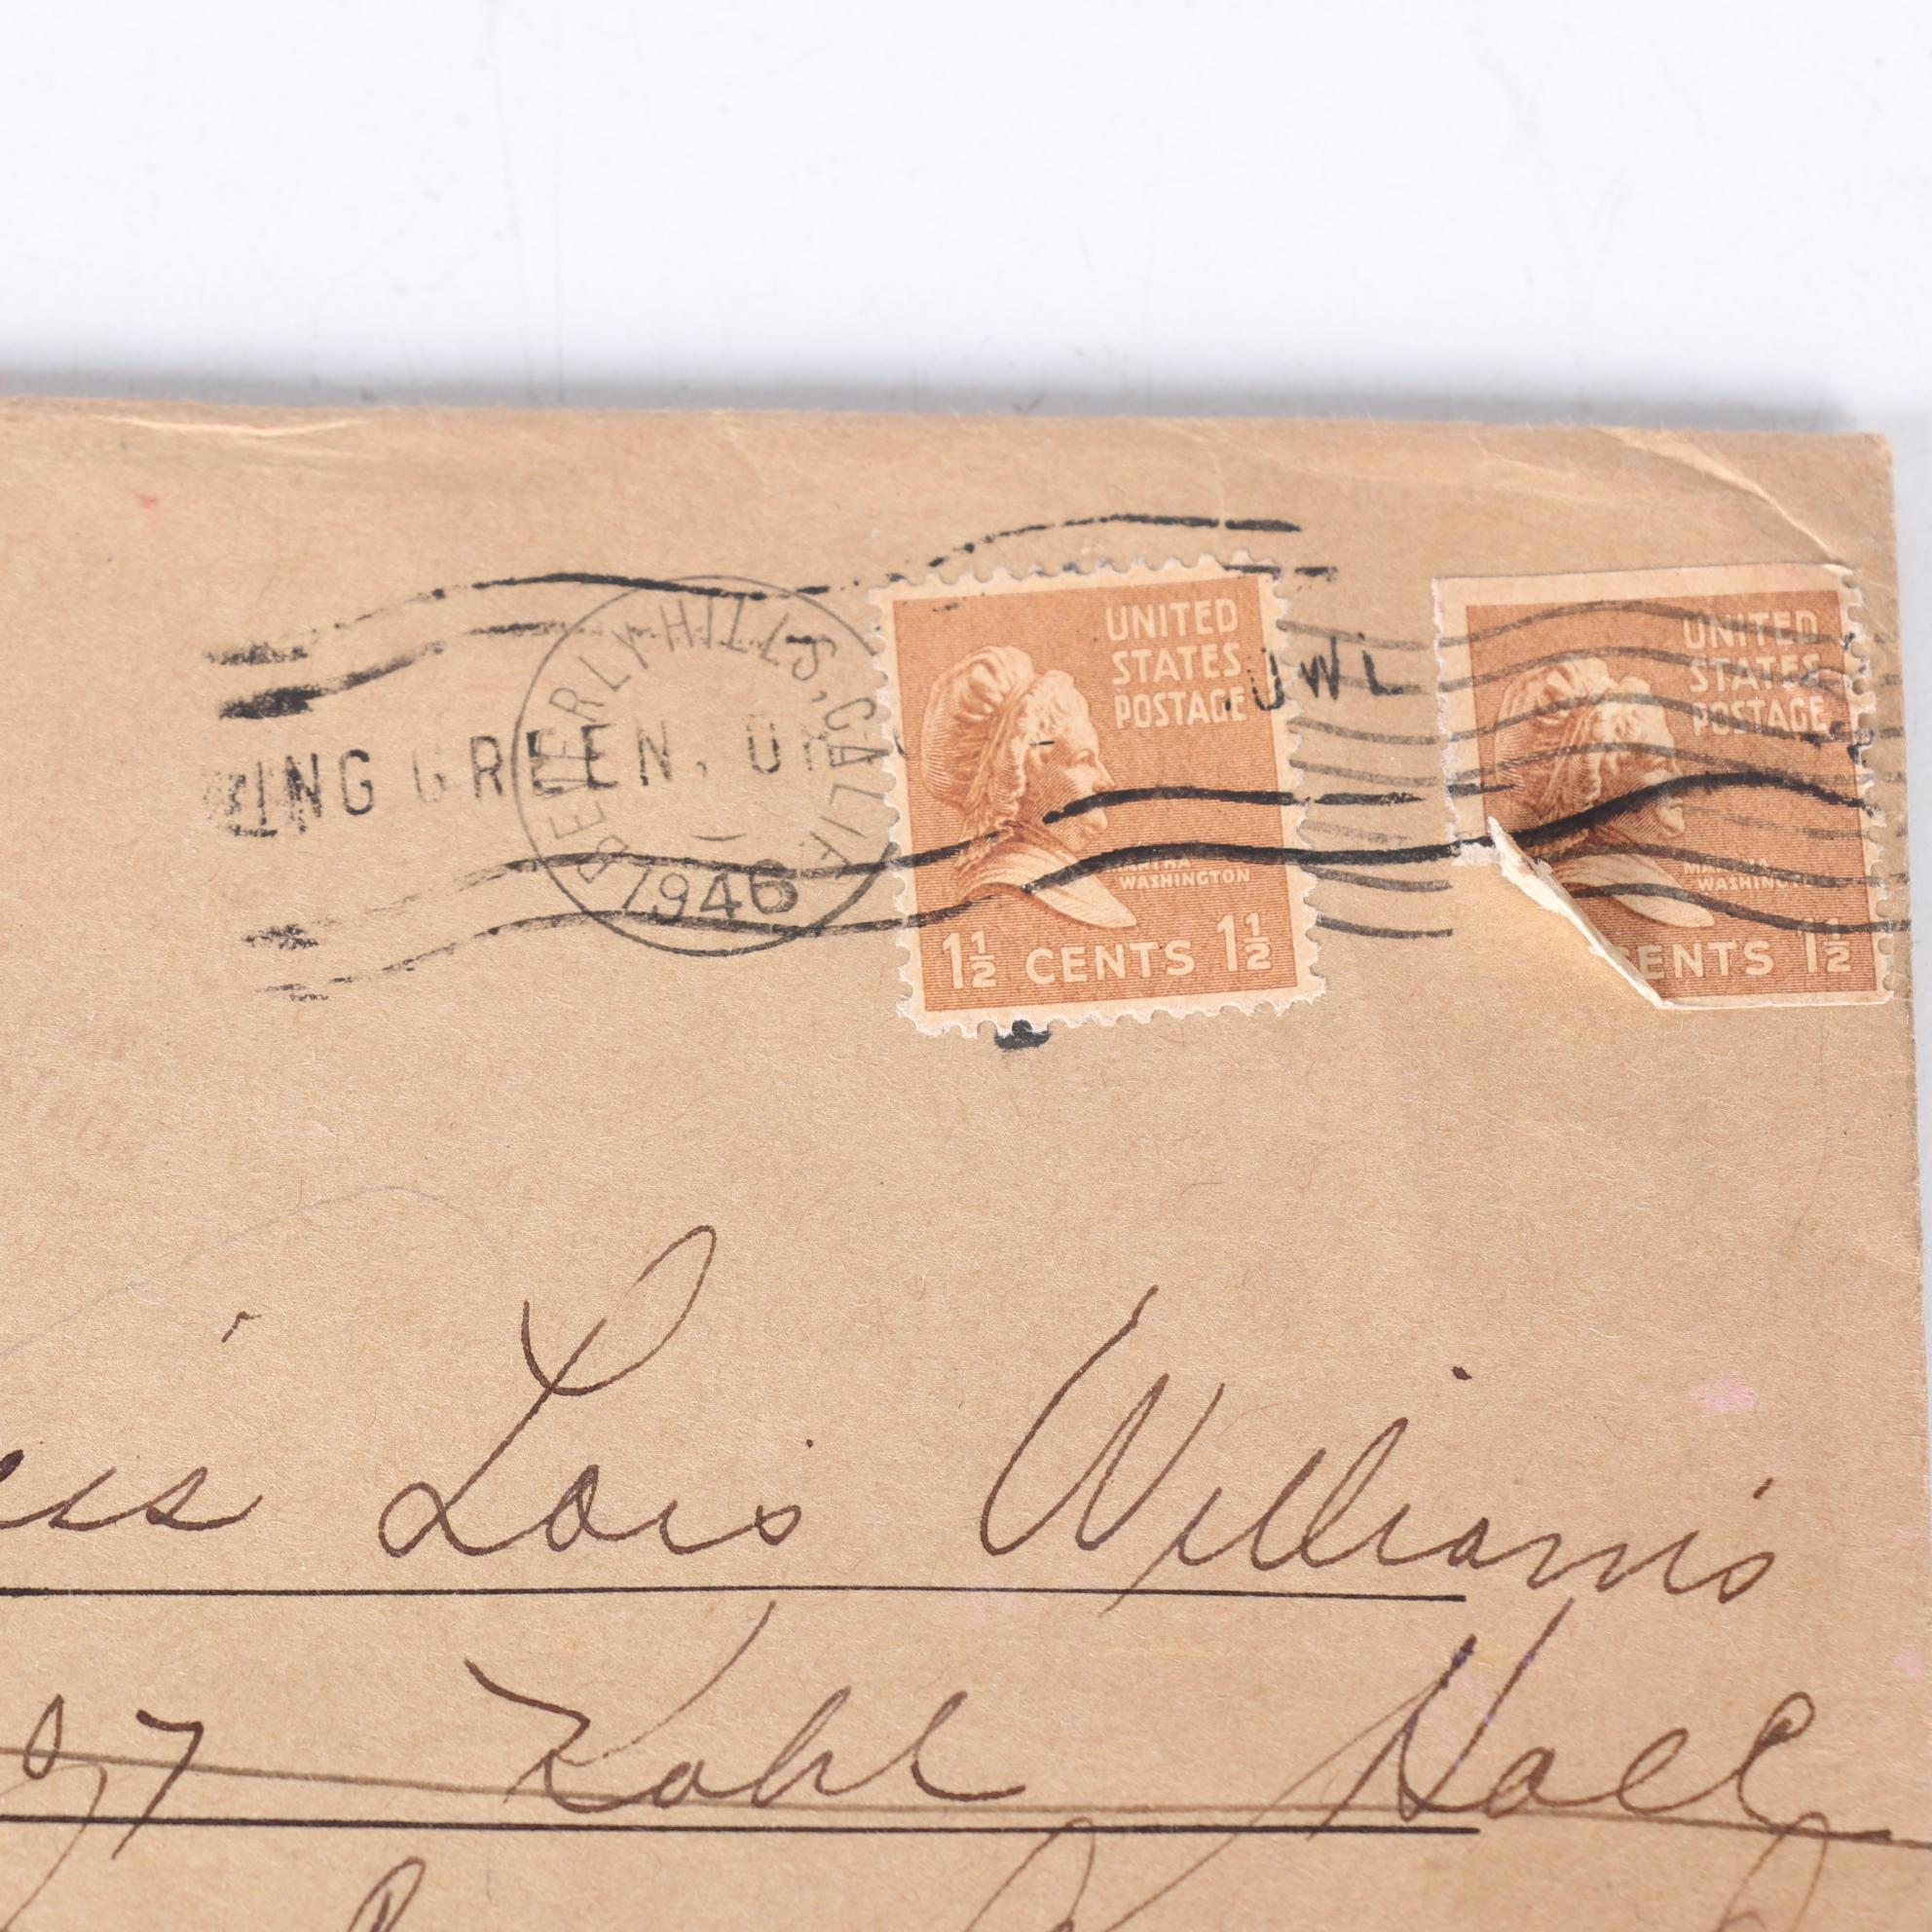 BEVERLY HILLS, CALIF.
1946
ING GREEN, O
UNITED
STATES
POSTAGE
MARTHA
WASHINGTON
1½ CENTS 1½
UNITED
STATES
POSTAGE
MARTHA
WASHINGTON
CENTS 1½
Lois Williams
Kohl Hall